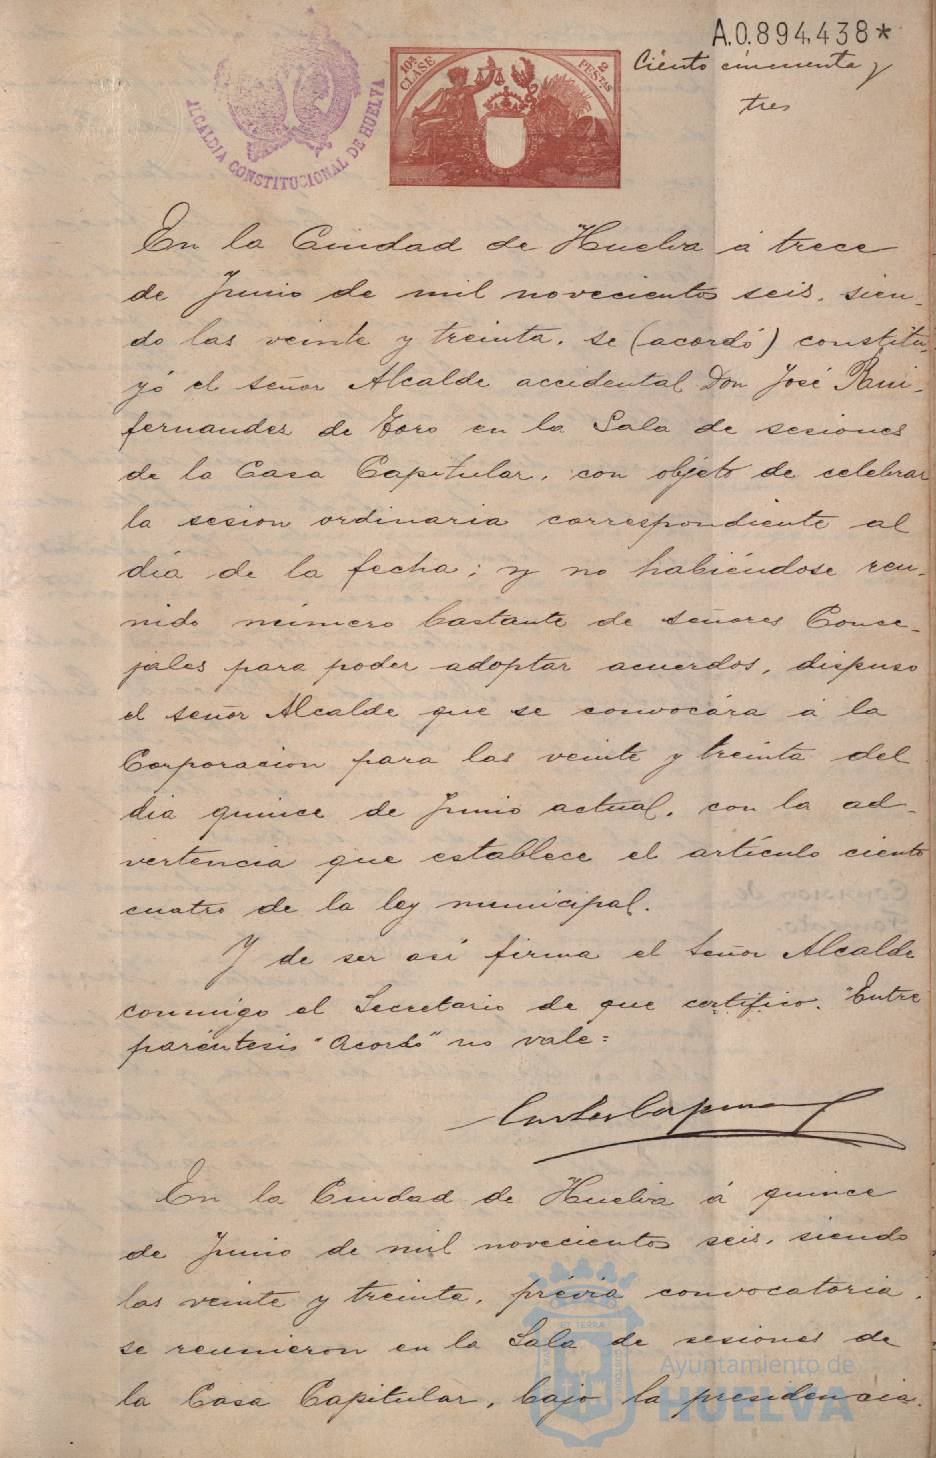 A.0.894.438*
Ciento cincuenta y
tres
10ª CLASE
2 PESTAS
ALCALDIA CONSTITUCIONAL DE HUELVA
En la Ciudad de Huelva á trece
de Junio de mil novecientos seis, sien-
do las veinte y treinta, se (acordó) constitu-
yó el señor Alcalde accidental Don José
fernandez de Toro en la Sala de sesiones
de la Casa Capitular, con objeto de celebrar
la sesion ordinaria correspondiente al
día de la fecha; y no habiéndose reu-
nido número bastante de señores Conce-
jales para poder adoptar acuerdos, dispuso
el señor Alcalde que se convocára á la
Corporacion para las veinte y treinta del
dia quince de Junio actual, con la ad-
vertencia que establece el artículo ciento
cuatro de la ley municipal.
Y de ser así firma el Señor Alcalde
conmigo el Secretario de que certifico. "Entre
paréntesis "acordó" no vale=
En la Ciudad de Huelva á quince
de Junio de mil novecientos seis, siendo
las veinte y treinta, prévia convocatoria,
se reunieron en la Sala de sesiones de
la Casa Capitular, bajo la presidencia
Ayuntamiento de
HUELVA